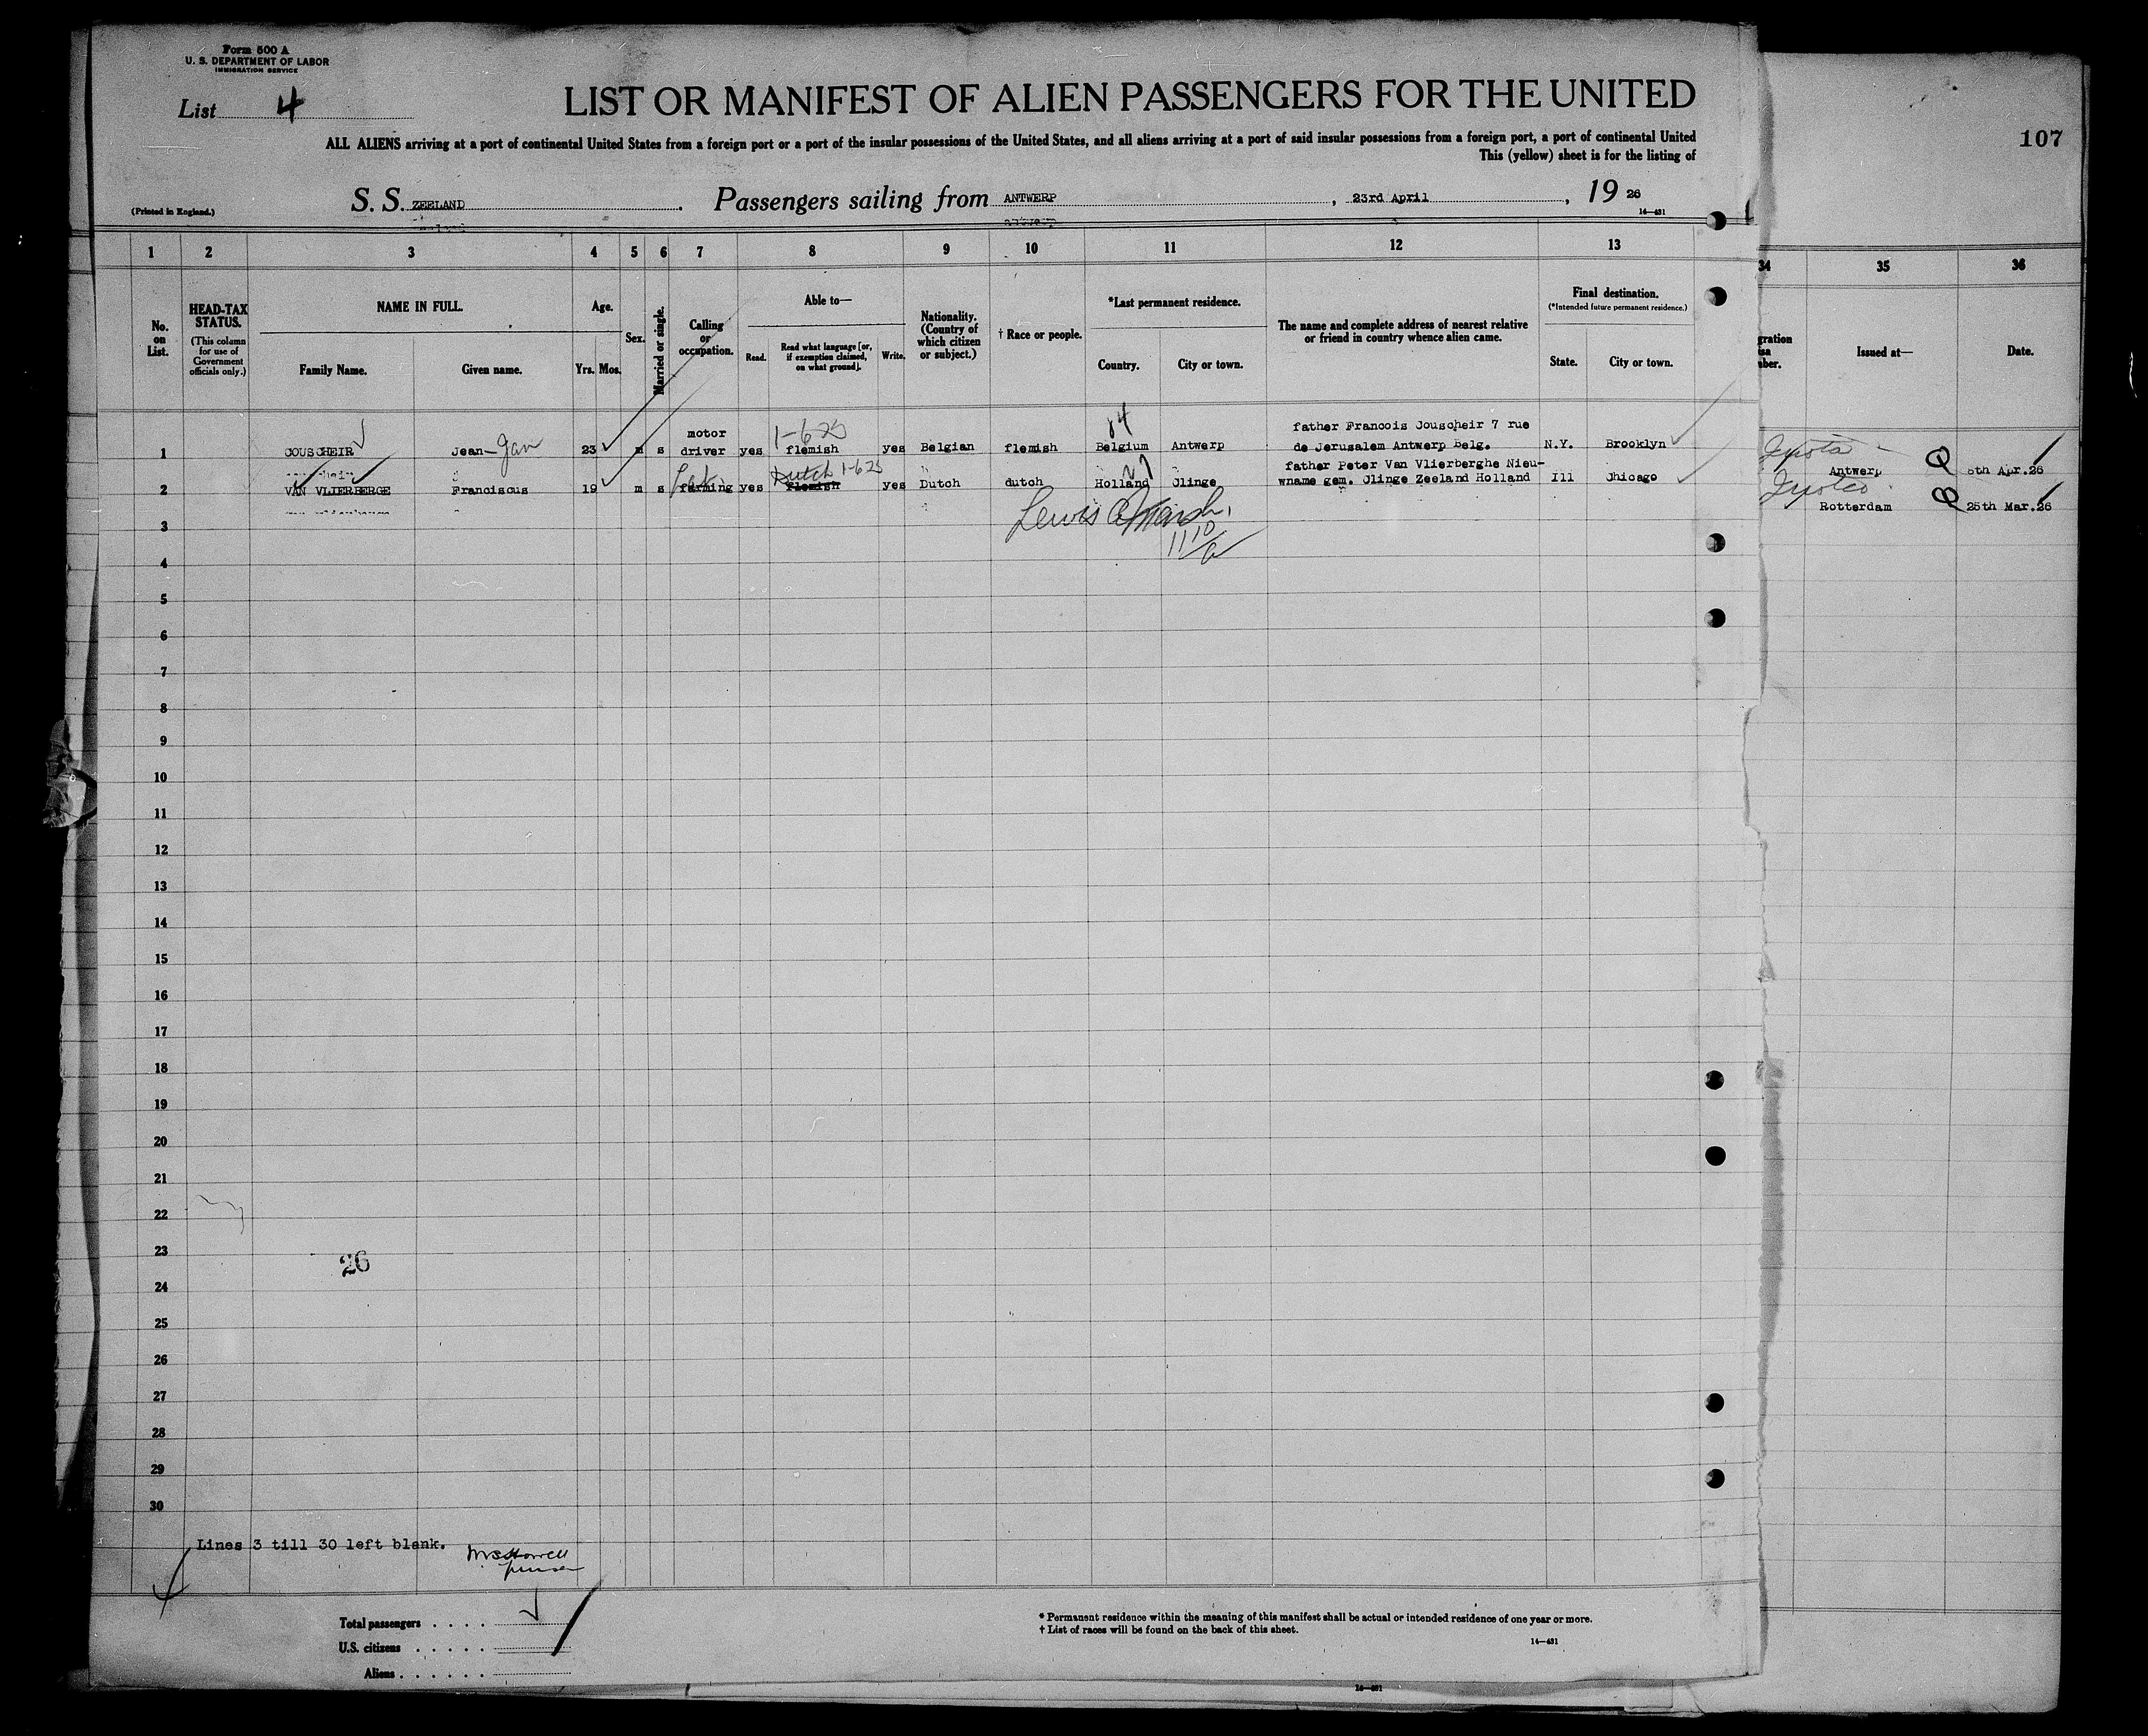 Form 500 A
U. S. DEPARTMENT OF LABOR
IMMIGRATION SERVICE
List 4
LIST OR MANIFEST OF ALIEN PASSENGERS FOR THE UNITED
ALL ALIENS arriving at a port of continental United States from a foreign port or a port of the insular possessions of the United States, and all aliens arriving at a port of said insular possessions from a foreign port, a port of continental United
This (yellow) sheet is for the listing of
107
(Printed in England.)
S. S. ZEELAND. Passengers sailing from ANTWERP, 23rd April, 19 26
14—431
1 2 3 4 5 6 7 8 9 10 11 12 13 34 35 36
No. on List.
HEAD-TAX STATUS. (This column for use of Government officials only.)
NAME IN FULL.
Family Name. Given name.
Age.
Yrs. Mos.
Sex.
Married or single.
Calling or occupation.
Able to—
Read. Read what language [or, if exemption claimed, on what ground]. Write.
Nationality. (Country of which citizen or subject.)
† Race or people.
*Last permanent residence.
Country. City or town.
The name and complete address of nearest relative or friend in country whence alien came.
Final destination.
(*Intended future permanent residence.)
State. City or town.
gration
sa
ber.
Issued at—
Date.
1 COUSCHEIR Jean-Jan 23 m s motor driver yes 1-6-25 flemish yes Belgian flemish 84 Belgium Antwerp father Francois Jouscheir 7 rue de Jerusalem Antwerp Belg. N.Y. Brooklyn Antwerp 8th Apr.26
2 VAN VLIERBERGE Franciscus 19 m s farming yes Dutch 1-6-25 flemish yes Dutch dutch Holland Clinge father Peter Van Vlierberghe Nieu-wname gem. Clinge Zeeland Holland Ill Chicago Rotterdam 25th Mar.26
3
4
5
6
7
8
9
10
11
12
13
14
15
16
17
18
19
20
21
22
23
24
25
26
27
28
29
30
26
Lines 3 till 30 left blank.
Total passengers . . . .
U.S. citizens . . . . .
Aliens . . . . . .
* Permanent residence within the meaning of this manifest shall be actual or intended residence of one year or more.
† List of races will be found on the back of this sheet.
14—431
14—431